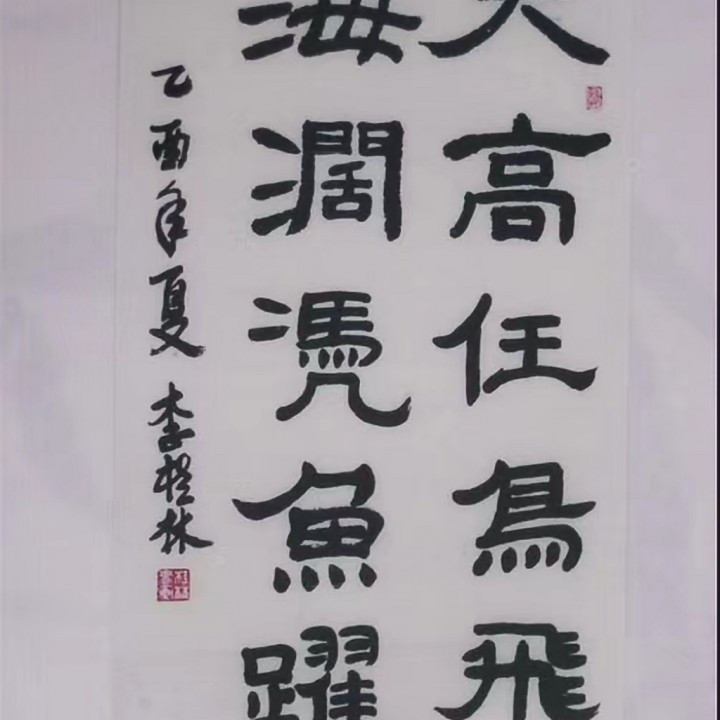 天高任鳥飛
海濶凭魚躍
乙酉年夏 李樫林